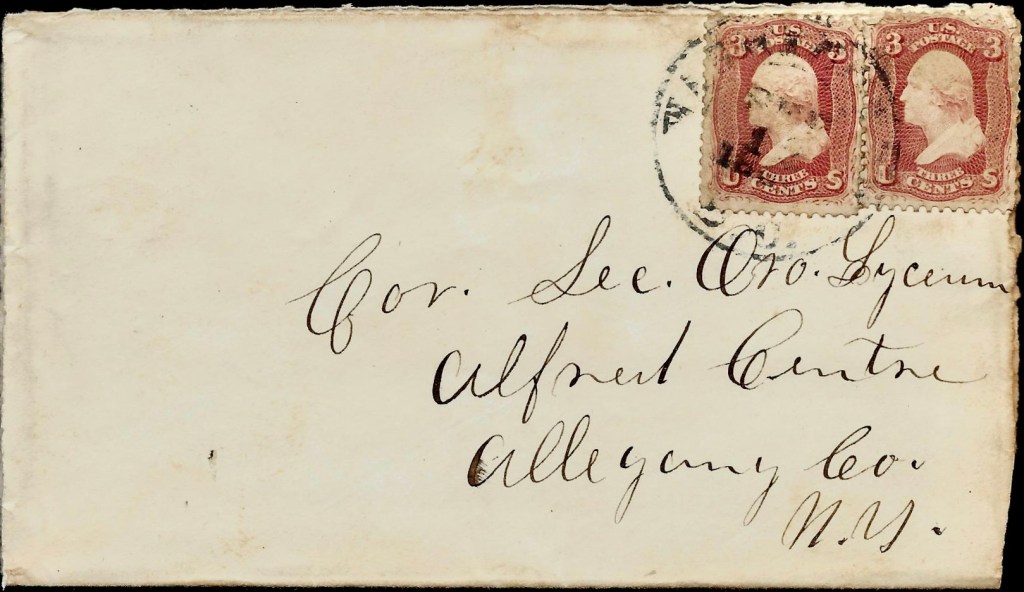 3 U.S. 3
POSTAGE
THREE
U CENTS S
3 U.S. 3
POSTAGE
THREE
U CENTS S
1
Cor. Sec. Oro. Lyceum
Alfred Centre
Allegany Co.
N.Y.